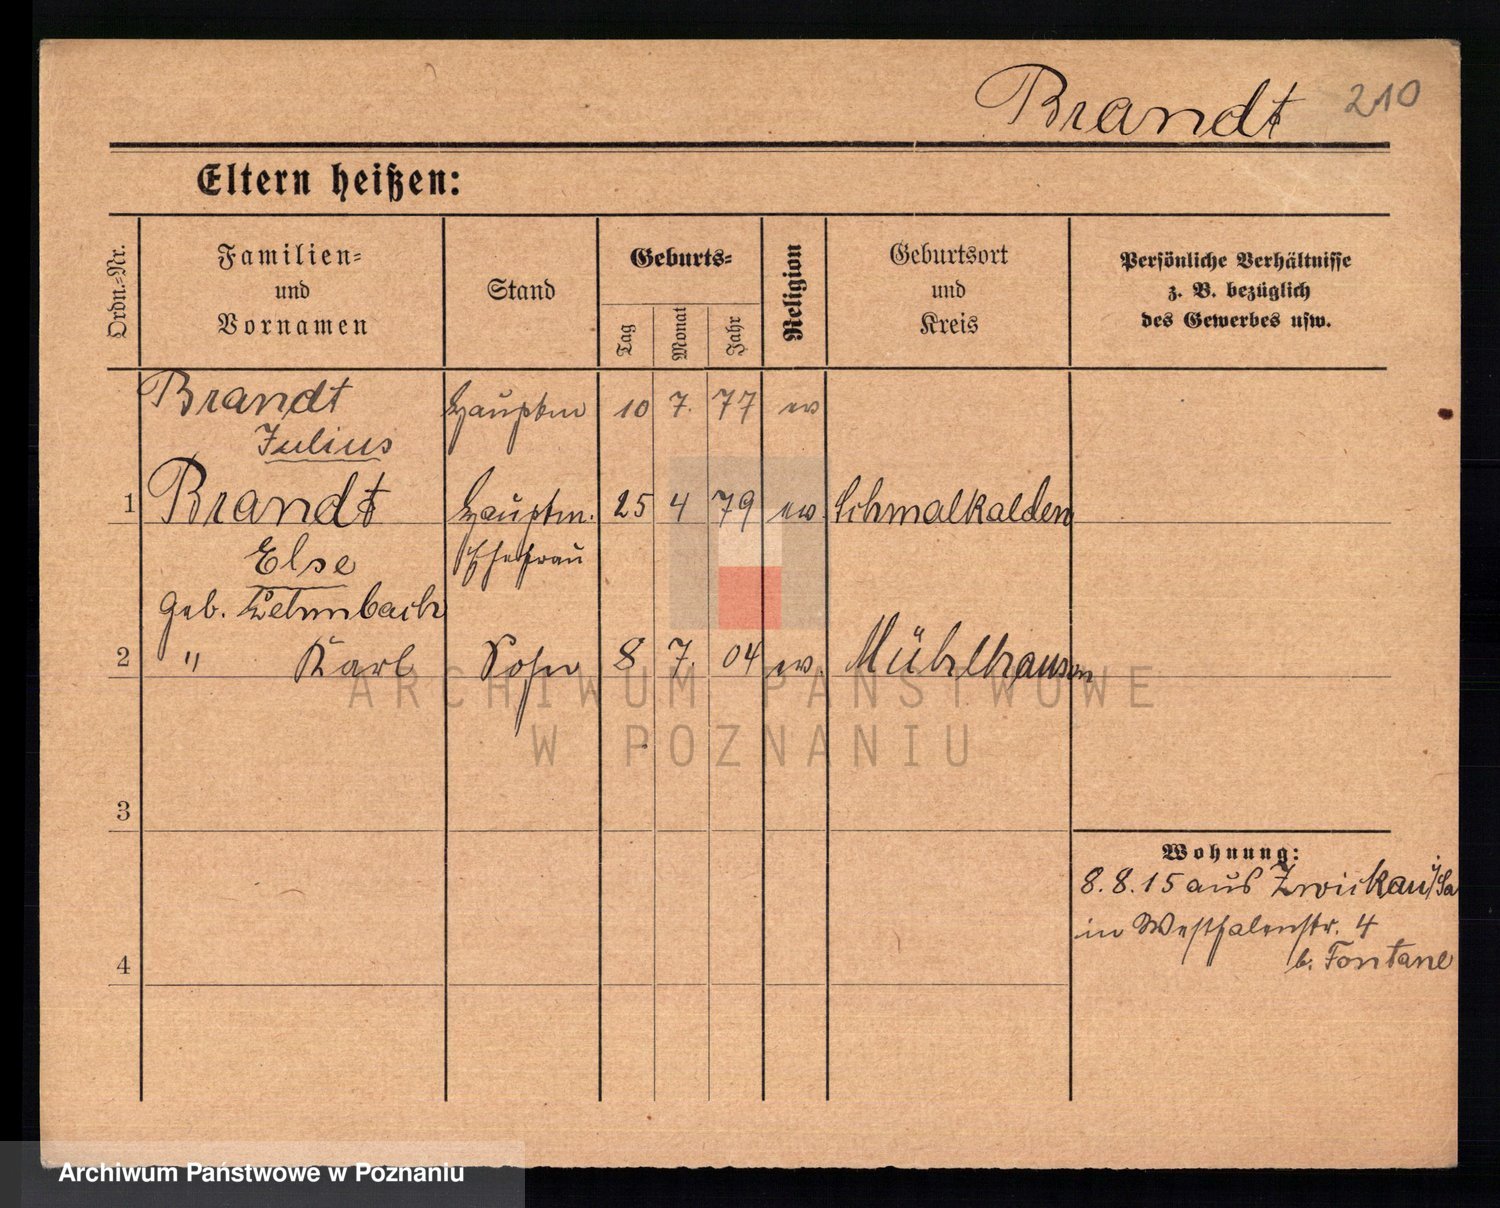 Brandt 210
Eltern heißen:
Ordn.-Nr.
Familien-
und
Vornamen
Stand
Geburts-
Tag
Monat
Jahr
Religion
Geburtsort
und
Kreis
Persönliche Verhältnisse
z. B. bezüglich
des Gewerbes usw.
Brandt Hauptm 10 7. 77 ev
Julius
1 Brandt Hauptm. 25 4 79 ev. Schmalkalden
Else Ehefrau
geb.
2 " Karl Sohn 8 7. 04 ev. Mühlhausen
ARCHIWUM PAŃSTWOWE
W POZNANIU
3
Wohnung:
8.8.15 aus Zwickau i/Sa
in Westfalenstr. 4
b. Fontane
4
Archiwum Państwowe w Poznaniu